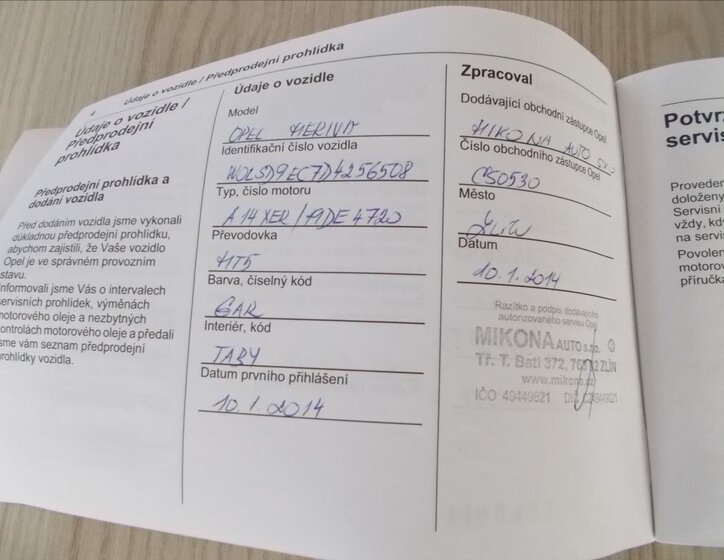 4
Údaje o vozidle / Předprodejní prohlídka
Údaje o vozidle /
Předprodejní
prohlídka
Předprodejní prohlídka a
dodání vozidla
Před dodáním vozidla jsme vykonali
důkladnou předprodejní prohlídku,
abychom zajistili, že Vaše vozidlo
Opel je ve správném provozním
stavu.
Informovali jsme Vás o intervalech
servisních prohlídek, výměnách
motorového oleje a nezbytných
kontrolách motorového oleje a předali
jsme vám seznam předprodejní
prohlídky vozidla.
Údaje o vozidle
Model
OPEL MERIVA
Identifikační číslo vozidla
W0LSD9EC7D4256508
Typ, číslo motoru
A14XER/19DE4720
Převodovka
MT5
Barva, číselný kód
GAR
Interiér, kód
TABY
Datum prvního přihlášení
10.1.2014
Zpracoval
Dodávající obchodní zástupce Opel
MIKONA AUTO SRO
Číslo obchodního zástupce Opel
CS0530
Město
Zlín
Datum
10.1.2014
Razítko a podpis dodávajícího
autorizovaného servisu Opel
MIKONA AUTO s.r.o. ①
Tř. T. Bati 372, 763 02 ZLÍN
www.mikona.cz
IČO 49449621 DIČ CZ49449621
Potvrz
servis
Proveden
doloženy
Servisní
vždy, kdy
na servis
Povolen
motorov
příručka